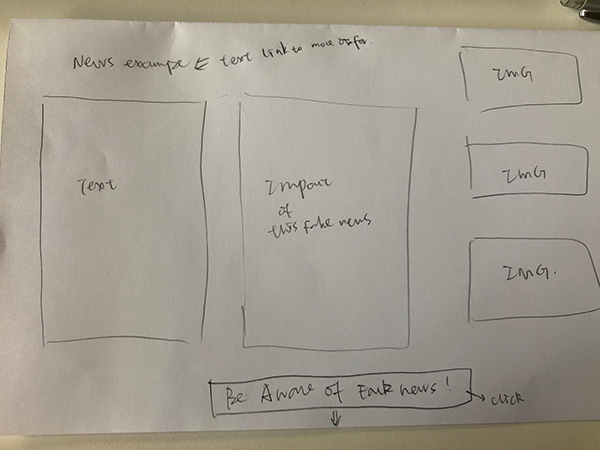 News exampe E text link to more infor.
Text
Impact
of
this fake news
IMG
IMG
IMG.
Be Aware of Fake news!
click